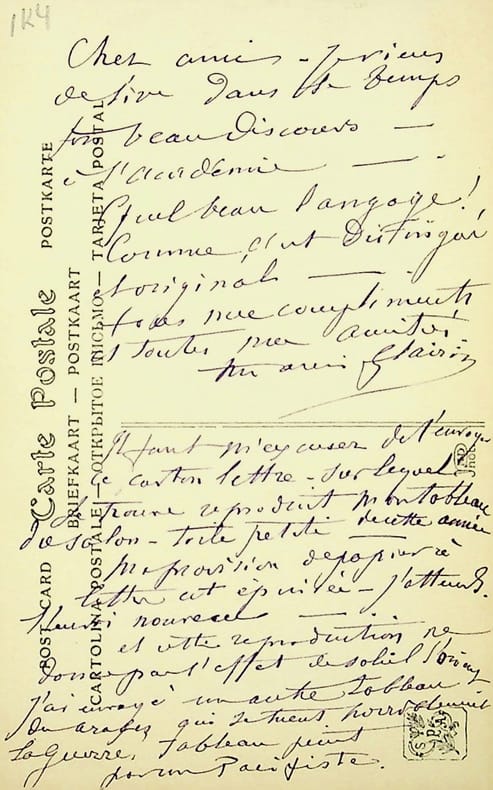 1K4
Cher ami - je viens
de lire dans le temps
ton beau Discours —
à l'académie — - .
Quel beau langage !
Comme c'est Distingué
et original —
tous mes compliments
et toutes mes amitiés.
ton ami Clairin
Il faut m'excuser de t'envoyer
ce carton lettre - sur lequel
se trouve reproduit mon tableau
du salon - toile petite de cette année
Ma provision de papier à
lettres est épuisée - J'attends
nouveau —
et cette reproduction ne
donne pas l'effet de soleil
J'ai envoyé un autre tableau
des arabes qui se tuent horriblement
La Guerre, Tableau peint
par un Pacifiste.
POST CARD Carte Postale POSTKARTE
BRIEFKART — POSTKAART
CARTOLINA POSTALE — ОТКРЫТОЕ ПИСЬМО — TARJETA POSTAL